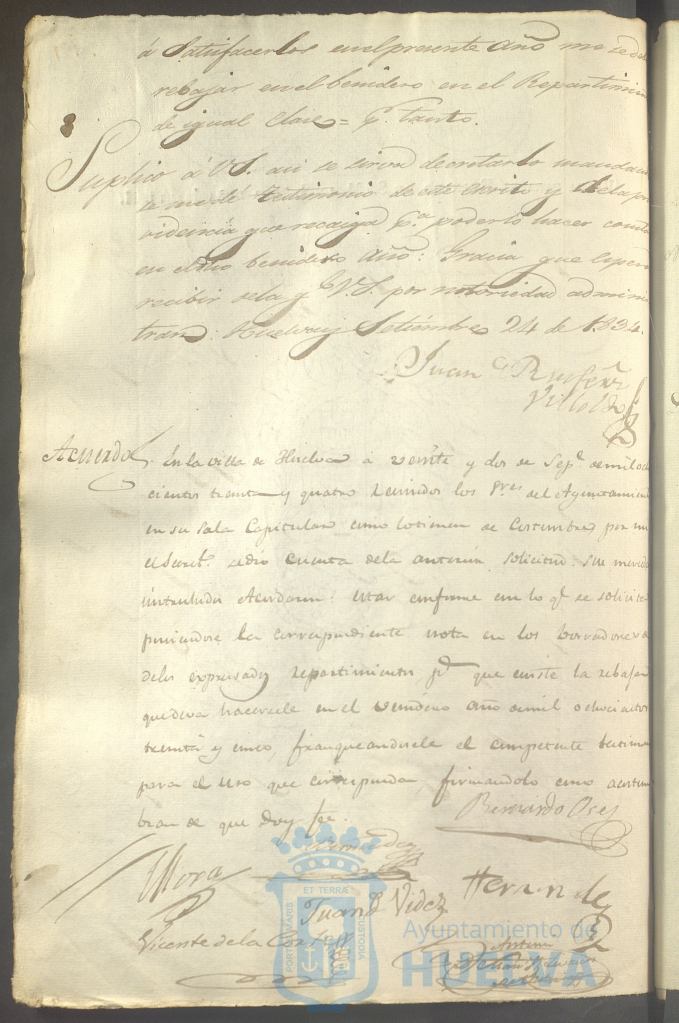 á Satisfacerlos en el presente año me se de
rebajar en el benidero en el Repartimien
de igual Clase = Pr. tanto.
Suplico á V.S. asi se sirva decretarlo mandan
se me dé testimonio de este escrito y de la pro
videncia que recaiga pa. poderlo hacer consta
en el benidero año: Gracia que espera
recibir de la de V.S. por notoriedad admini
tran. Huelva y Setiembre 24 de 1834.
Juan
Villoldo
Acuerdo En la villa de Huelva á veinte y dos de Sepe. de mil och
cientos treinta y quatro reunidos los Sres del Ayuntamien
en su Sala Capitular como lo tienen de Costumbre por mi
el Escrib.º se dio cuenta de la anterior solicitud. Sus mercede
intruidos Acordaron: estar conforme con lo qe. se solicita
poniendose la correspondiente nota en los borradores
de los expresados repartimientos pa. que conste la rebaja
que deva hacersele en el venidero año de mil ochocientos
treinta y cinco, franqueandosele el competente testimo
para el uso que corresponda, firmandolo como acostum
bran de que doy fee.
Bernardo
Mora
Juan Videz
Hernandez
Vicente de la Corte
PORTUS MARIS
ET TERRÆ
CUSTODIA
Ayuntamiento de
HUELVA